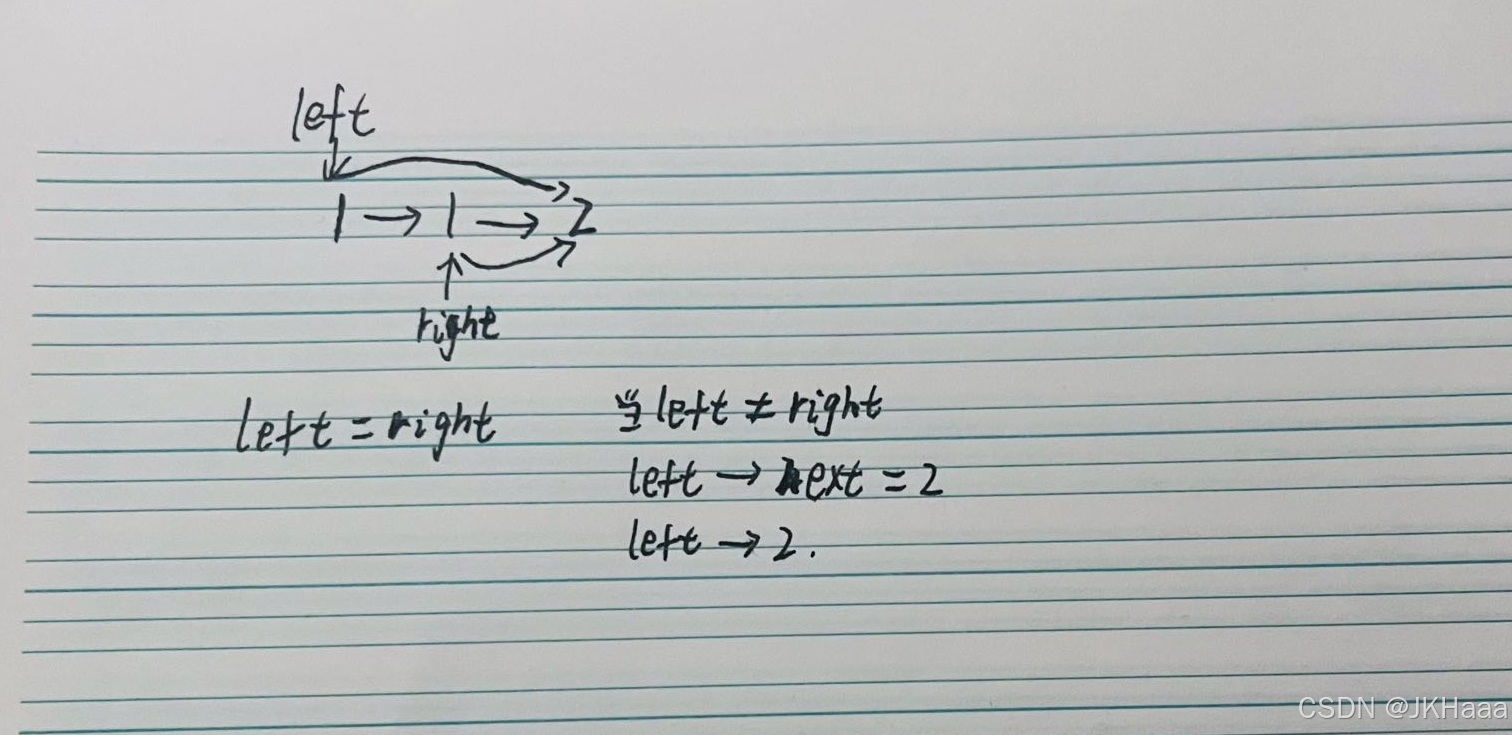 left
1 → 1 → 2
right
left = right
当 left ≠ right
left → next = 2
left → 2.
CSDN @JKHaaa